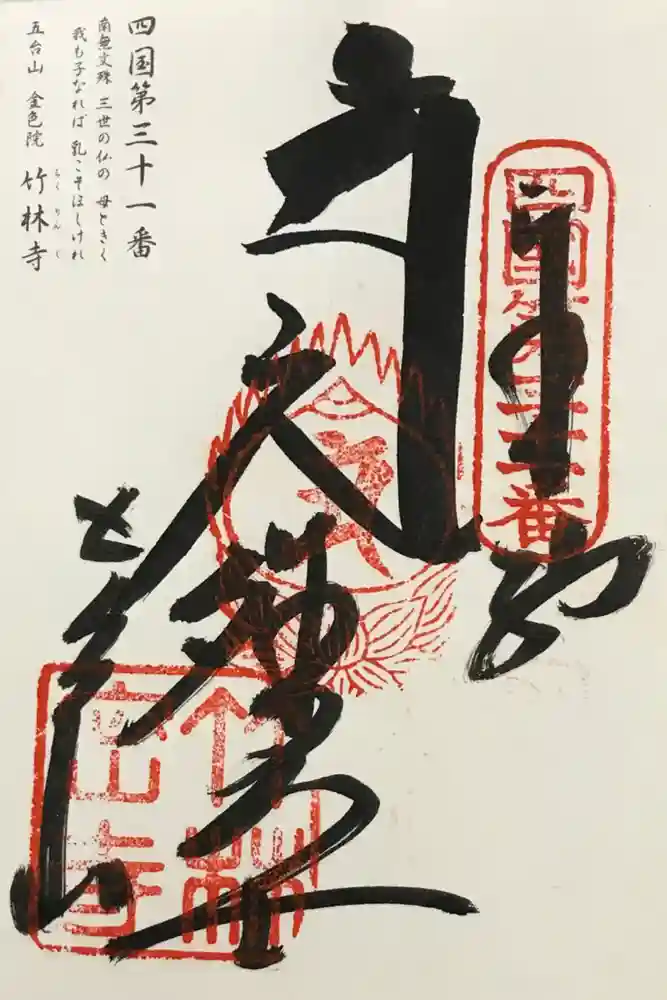 四国第三十一番
奉納
文殊
竹林
密寺
四国第三十一番
南無文殊 三世の仏の 母ときく
我も子なれば 乳こそほしけれ
五台山 金色院 竹林寺
ちくりんじ